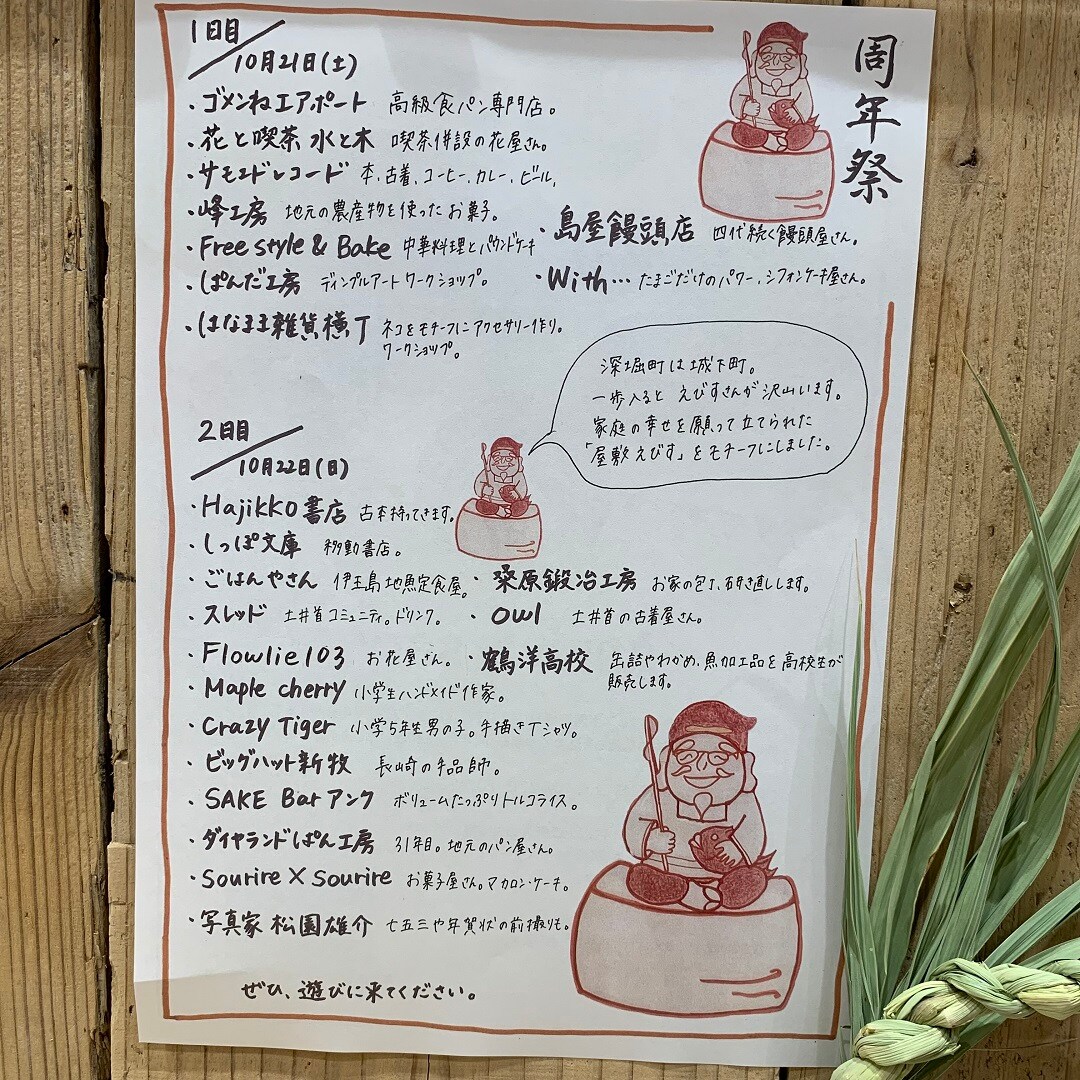 周年祭
1日目
10月21日(土)
・ゴメンねエアポート 高級食パン専門店。
・花と喫茶 水と木 喫茶併設の花屋さん。
・サモエドレコード 本、古着、コーヒー、カレー、ビール、
・峰工房 地元の農産物を使ったお菓子。
・島屋饅頭店 四代続く饅頭屋さん。
・Free style & Bake 中華料理とパウンドケーキ
・ぱんだ工房 ディンプルアートワークショップ。
・With… たまごだけのパワー、シフォンケーキ屋さん。
・はなまま雑貨横丁 ネコをモチーフにアクセサリー作り。
ワークショップ。
深堀町は城下町。
一歩入ると えびすさんが沢山います。
家庭の幸せを願って立てられた
「屋敷えびす」をモチーフにしました。
2日目
10月22日(日)
・Hajikko書店 古本持ってきます。
・しっぽ文庫 移動書店。
・ごはんやさん 伊王島地魚定食屋。
・桑原鍛冶工房 お家の包丁、研ぎ直しします。
・スレッド 土井首コミュニティ。ドリンク。
・owl 土井首の古着屋さん。
・Flowlie103 お花屋さん。
・鶴洋高校 缶詰やわかめ、魚加工品を高校生が
販売します。
・Maple cherry 小学生ハンドメイド作家。
・Crazy Tiger 小学5年生男の子。手描きTシャツ。
・ビッグハット新牧 長崎の手品師。
・SAKE Bar アンク ボリュームたっぷりトルコライス。
・ダイヤランドぱん工房 31年目。地元のパン屋さん。
・Sourire×Sourire お菓子屋さん。マカロン・ケーキ。
・写真家 松園雄介 七五三や年賀状の前撮りも。
ぜひ、遊びに来てください。